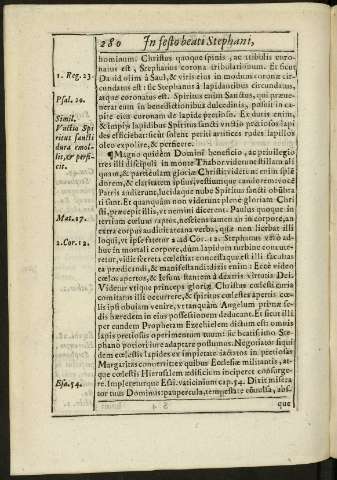 280 In festo beati Stephani,
hominum. Christus quoque spinis, ac tribulis coro-
natus est, Stephanus corona tribulationum. Et sicut
1. Reg. 23.
Dauid olim à Saul, & viris eius in modum coronæ cir
cundatus est: sic Stephanus à lapidantibus circundatus,
atque coronatus est. Spiritus enim Sanctus, qui præue-
Psal. 20.
nerat eum in benedictionibus dulcedinis, posuit in ca-
pite eius coronam de lapide pretioso. Ex duris enim,
Simil.
& impijs lapidibus Spiritus sancti vnctio prætiosos lapi
Vnctio Spi
des efficiebat: sicut solent periti artifices rudes lapillos
ritus sancti
oleo expolire, & perficere.
dura emol-
lit, & perfi-
cit.
¶Magno quidem Domini beneficio, ac priuilegio
tres illi discipuli in monte Thabor viderunt stillam ali
quam, & particulam gloriæ Christi; viderunt enim splé
dorem, & claritatem ipsius, vestiumque candorem: vocē
Patris audierunt, lucidaque nube Spiritus sancti obūbra
ti sunt. Et quanquam non viderunt plene gloriam Chri
Mat. 17.
sti, præcepit illis, vt nemini dicerent. Paulus quoque in
tertium cœlum raptus, nesciens tamen an in corpore, an
extra corpus audieritarcana verba, quæ non licebat illi
2. Cor. 12.
loqui, vt ipse fatetur 2. ad Cor. 12. Stephanus verò ad-
huc in mortali corpore, dum lapidum turbine concute-
retur, vidit secreta cœlestia: concestaque est illi facultas
ea prædicandi, & manifestandi: dixit enim: Ecce video
cœlos apertos, & Iesum stantem à dextris virtutis Dei.
Videtur vtique princeps gloriæ Christus cœlesti curia
comitatus illi occurrere, & spiritus cœlestes apertis cœ-
lis ipsi obuiam venire, vt tanquàm Angelum primæ se-
dis hæredem in eius possessionem deducant. Et sicut illi
per eundem Prophetam Ezechielem dictum est: omnis
lapis preciosus operimentum tuum: sic beatissimo Ste-
phano potiori iure adaptare possumus. Negotiator siqui
dem cœlestis lapides ex impietate iactatos in pretiosas
Margaritas conuertit: ex quibus Ecclesiæ militantis, at-
que cœlestis Hierusalem ædificium inciperet consurge-
Esa. 54.
re. Impleturque Esai. vaticinium cap. 54. Dixit misera
tor tuus Dominus: paupercula, tempestate cōuulsa, abs-
que